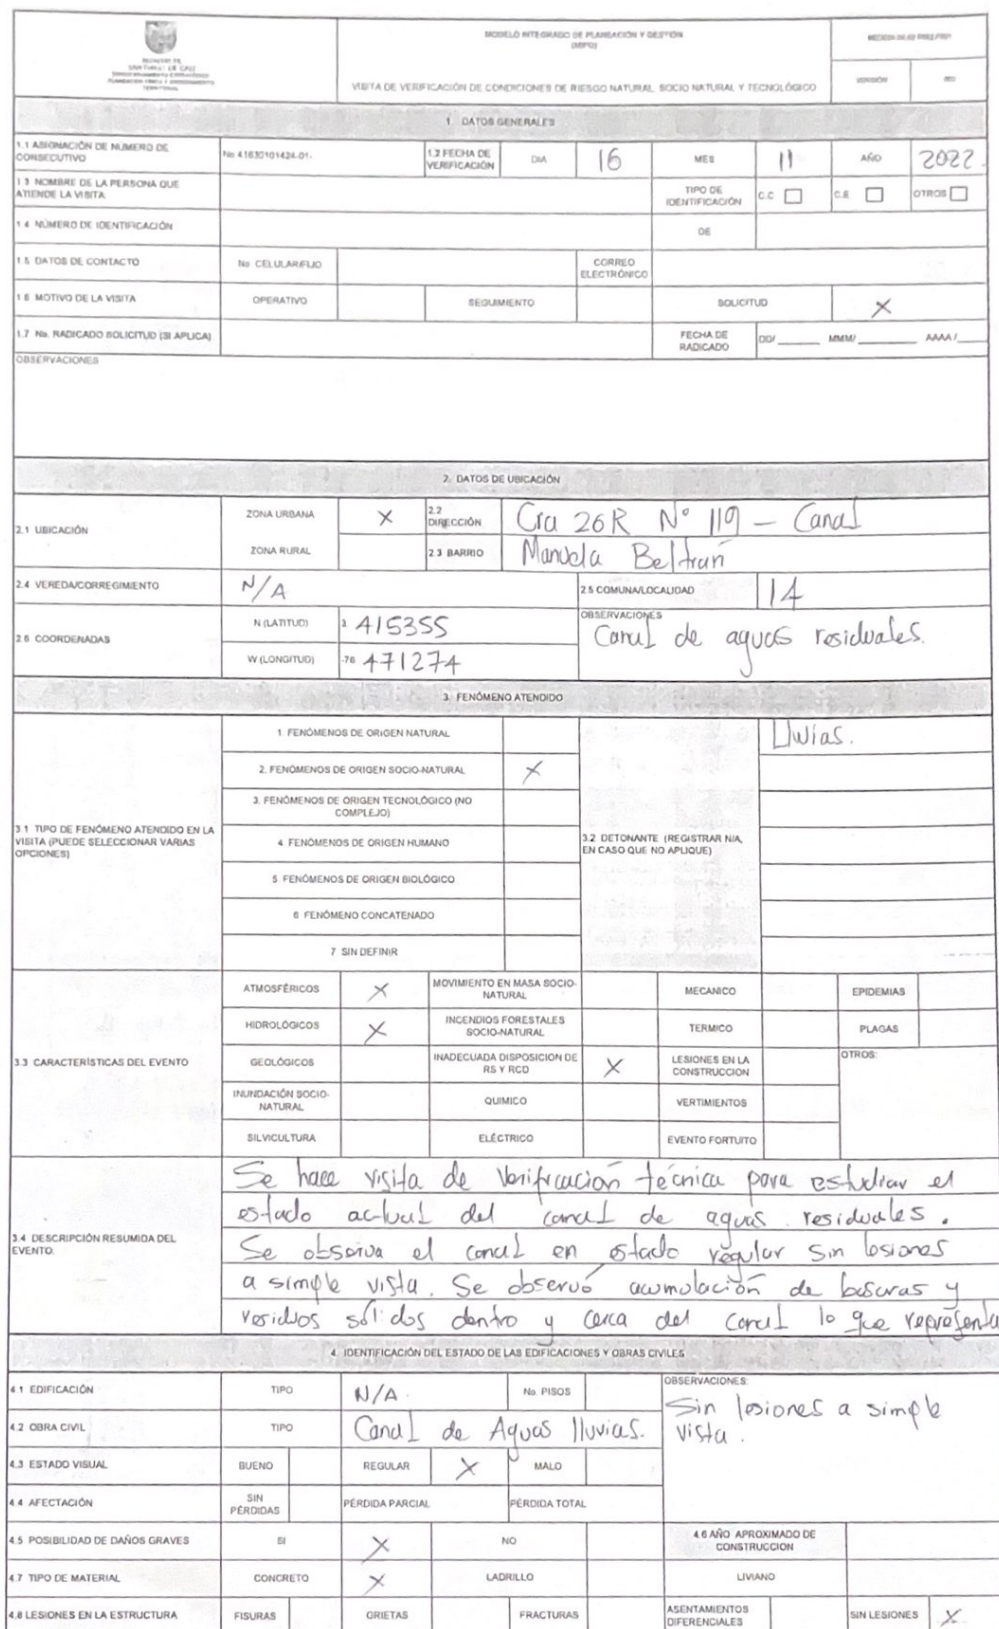 SANTIAGO DE CALI
MODELO INTEGRADO DE PLANEACIÓN Y GESTIÓN
(MIPG)
VISITA DE VERIFICACIÓN DE CONDICIONES DE RIESGO NATURAL, SOCIO NATURAL Y TECNOLÓGICO
VERSIÓN
1. DATOS GENERALES
1.1 ASIGNACIÓN DE NÚMERO DE CONSECUTIVO No 41630101424-01- 1.2 FECHA DE VERIFICACIÓN DIA 16 MES 11 AÑO 2022
1.3 NOMBRE DE LA PERSONA QUE ATIENDE LA VISITA TIPO DE IDENTIFICACIÓN C.C C.E OTROS
1.4 NÚMERO DE IDENTIFICACIÓN DE
1.5 DATOS DE CONTACTO No CELULAR/FIJO CORREO ELECTRÓNICO
1.6 MOTIVO DE LA VISITA OPERATIVO SEGUIMIENTO SOLICITUD X
1.7 No. RADICADO SOLICITUD (SI APLICA) FECHA DE RADICADO DD/ MMM/ AAAA/
OBSERVACIONES
2. DATOS DE UBICACIÓN
2.1 UBICACIÓN ZONA URBANA X 2.2 DIRECCIÓN Cra 26R N° 119 - Canal
ZONA RURAL 2.3 BARRIO Manuela Beltran
2.4 VEREDA/CORREGIMIENTO N/A 2.5 COMUNA/LOCALIDAD 14
2.6 COORDENADAS N (LATITUD) 3. 415355 OBSERVACIONES Canal de aguas residuales.
W (LONGITUD) -76 471274
3. FENÓMENO ATENDIDO
3.1 TIPO DE FENÓMENO ATENDIDO EN LA VISITA (PUEDE SELECCIONAR VARIAS OPCIONES)
1. FENÓMENOS DE ORIGEN NATURAL
2. FENÓMENOS DE ORIGEN SOCIO-NATURAL X
3. FENÓMENOS DE ORIGEN TECNOLÓGICO (NO COMPLEJO)
4. FENÓMENOS DE ORIGEN HUMANO
5. FENÓMENOS DE ORIGEN BIOLÓGICO
6 FENÓMENO CONCATENADO
7 SIN DEFINIR
3.2 DETONANTE (REGISTRAR N/A, EN CASO QUE NO APLIQUE) Lluvias.
3.3 CARACTERÍSTICAS DEL EVENTO
ATMOSFÉRICOS X MOVIMIENTO EN MASA SOCIO-NATURAL MECANICO EPIDEMIAS
HIDROLÓGICOS X INCENDIOS FORESTALES SOCIO-NATURAL TERMICO PLAGAS
GEOLÓGICOS INADECUADA DISPOSICION DE RS Y RCD X LESIONES EN LA CONSTRUCCION OTROS:
INUNDACIÓN SOCIO-NATURAL QUIMICO VERTIMIENTOS
SILVICULTURA ELÉCTRICO EVENTO FORTUITO
3.4 DESCRIPCIÓN RESUMIDA DEL EVENTO.
Se hace visita de Verificación técnica para estudiar el
estado actual del canal de aguas residuales.
Se observa el canal en estado regular sin lesiones
a simple vista. Se observó acumulación de basuras y
residuos sólidos dentro y cerca del canal lo que representa
4. IDENTIFICACIÓN DEL ESTADO DE LAS EDIFICACIONES Y OBRAS CIVILES
4.1 EDIFICACIÓN TIPO N/A. No PISOS OBSERVACIONES:
Sin lesiones a simple
vista.
4.2 OBRA CIVIL TIPO Canal de Aguas lluvias.
4.3 ESTADO VISUAL BUENO REGULAR X MALO
4.4 AFECTACIÓN SIN PÉRDIDAS PÉRDIDA PARCIAL PÉRDIDA TOTAL
4.5 POSIBILIDAD DE DAÑOS GRAVES SI X NO 4.6 AÑO APROXIMADO DE CONSTRUCCION
4.7 TIPO DE MATERIAL CONCRETO X LADRILLO LIVIANO
4.8 LESIONES EN LA ESTRUCTURA FISURAS GRIETAS FRACTURAS ASENTAMIENTOS DIFERENCIALES SIN LESIONES X